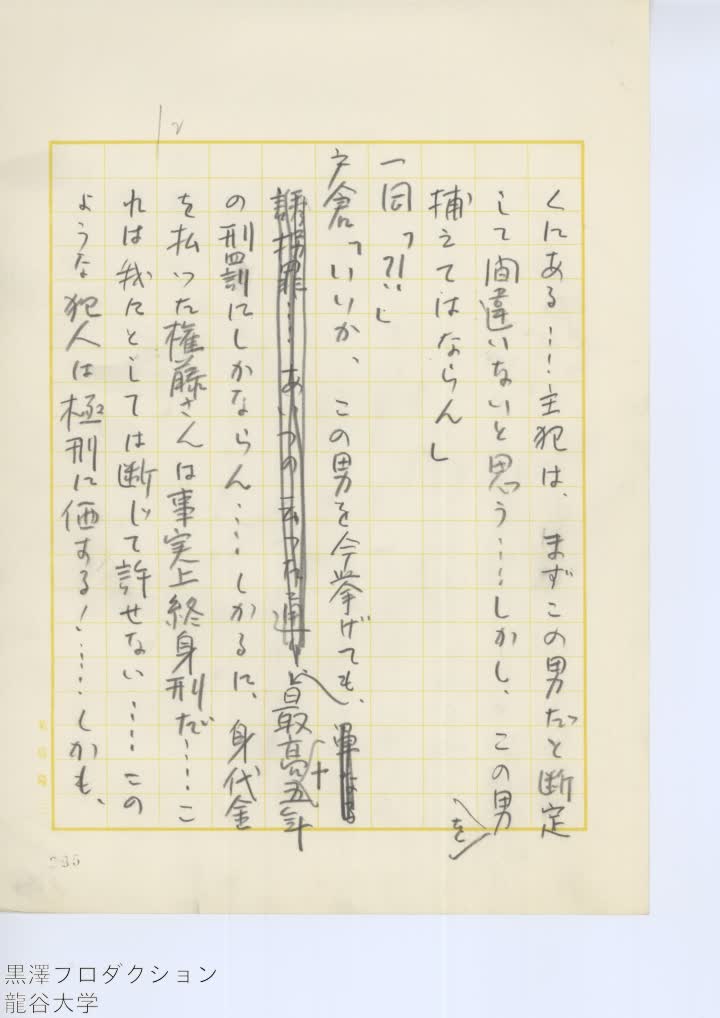 くにある…！主犯は、まずこの男だと断定
して間違いないと思う……しかし、この男を
捕えてはならん」
一同「？！」
戸倉「いいか、この男を今挙げても、単なる
誘拐罪……あいつの云った通り最高十五年
の刑罰にしかならん……しかるに、身代金
を払った権藤さんは事実上終身刑だ……こ
れは我々としては断じて許せない……この
ような犯人は極刑に価する！……しかも、
285
黒澤プロダクション
龍谷大学